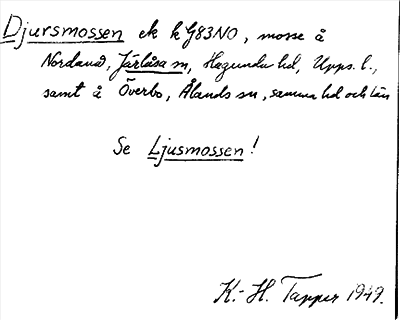 Djursmossen ek k G83NO, mosse å
Nordanå, Järlåsa sn, Hagunda hd, Upps. l.,
samt å Överbo, Ålands sn, samma hd och län
Se Ljusmossen!
K.-H. Tapper 1949.